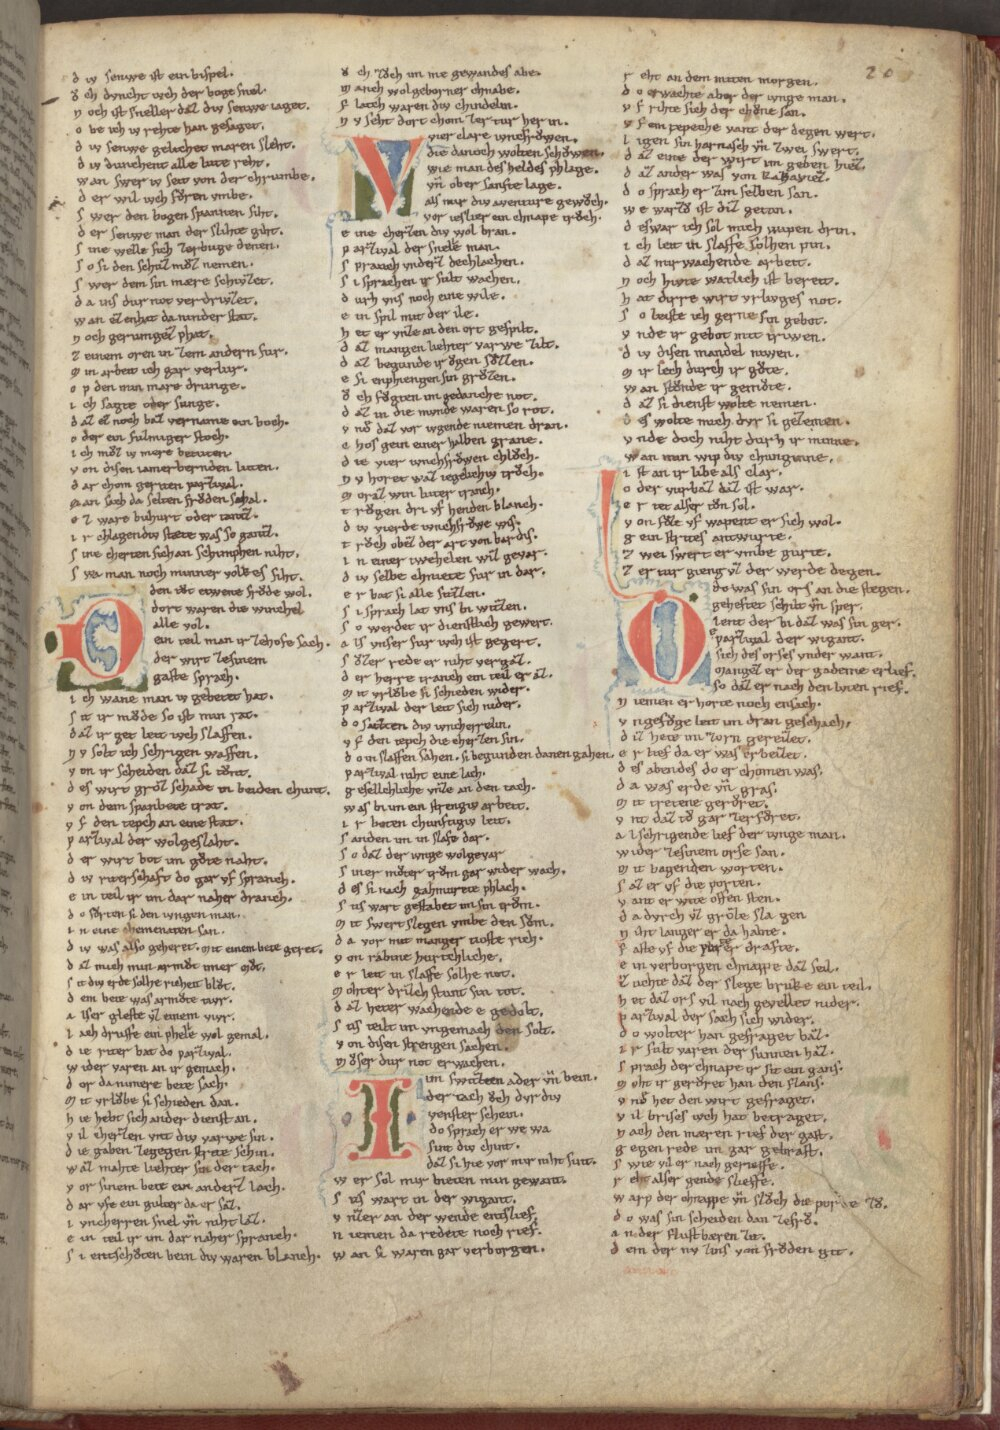 20
d iv senwe ist ein bispel.
oͮ ch dvncht iveh der boge snel.
n och ist sneller daz div senwe iaget.
o be ich iv rehte han gesaget.
d iv senwe gelichet maren sleht.
d iv dvnchent alle lvte reht.
w an swer iv seit von der chrvmbe.
d er wil iveh foͮren vmbe.
s wer den bogen spannen siht.
d er senwe man der slihte giht.
s ine welle sich zerbivge denen.
s o si den schvz moͮz nemen.
s wer dem sin mære schivzet.
d a ins dvr not verdrivzet.
w an ez enhat da ninder stat.
n och gervmgez phat.
z einem oren in zem andern fvr.
m in arbeit ich gar verlvr.
o p den min mare drvnge.
i ch sagte oder svnge.
d az ez noch baz vername ein boch.
o der ein fvlmiger stoch.
i ch moͮz iv mere betivten
v on disen iamerbernden livten.
d ar chom geriten parzival.
m an sach da selten froͮden schal.
e z ware bvhvrt oder tantz.
i r chlagendiv stæte was so gantz.
s ine cherten sich an schimphen niht.
s wa man noch minner volkes siht.
den tvt etwene froͮde wol.
dort waren die winchel
alle vol.
ein teil man ir zehofe sach.
der wirt zesinem
gaste sprach.
i ch wane man iv gebetet hat.
s it ir moͮde so ist min rat.
d az ir get leit iveh slaffen.
n v solt ich schrigen waffen.
v on ir scheiden daz si toͮnt.
d es wirt groz schade in beiden chvnt.
v on dem spanbete trat.
v f den tepch an eine stat.
p arzival der wolgeslaht.
d er wirt bot im goͮte naht.
d iv riterschaft do gar vf spranch.
e in teil ir im dar naher dranch.
d o foͮrten si den ivngen man.
i n eine chemenaten san.
d iv was also geheret. mit einem bete geret.
d az mich min armoͮt imer moͮt.
s it div erde solhe richeit bloͮt.
d em bete was armoͮte tivr.
a lser gleste vz einem vivr.
l ach drvffe ein phelle wol gemal.
d ie riter bat do parzival.
w ider varen an ir gemach.
d or da nimere bete sach.
m it vrloͮbe si schieden dan.
h ie hebt sich ander dienst an.
v il cherzen vnt div varwe sin.
d ie gaben zegegen strite schin.
w az mahte liehter sin der tach.
v or sinem bete ein anderz lach.
d ar vfe ein gvlter da er saz.
i vncherren snel vn̄ niht laz.
e in teil ir im dar naher spranch.
s i entschoͮten bein div waren blanch.
oͮ ch zoͮch im me gewandes abe.
m anch wolgeborner chnabe.
f latch waren div chindelin.
n v seht dort chom ze r tvr her in.
vier clare ivnchfroͮwen.
die danoch wolten schoͮwen.
wie man des heldes phlage.
vn̄ ober sanfte lage.
als mir div aventvre gewoͮch.
vor ieslier ein chnape troͮch.
e ine cherzen div wol bran.
p arzival der snelle man.
s pranch vnderz dechlachen.
s i sprachen ir svlt wachen.
d vrh vns noch eine wile.
e in spil mit der ile.
h et er vnze an den ort gespilt.
d az mangen liehter varwe zilt.
d az begvnde ir oͮgen soͮzzen.
e si enphiengen sin groͮzen.
oͮ ch foͮgten im gedanche not.
d az in die mvnde waren so rot.
v noͮ daz vor ivgende niemen dran.
e hos gein einer halben grane.
d ie vier ivnchfroͮwen chloͮch.
n v horet waz iegelichiv troͮch.
m oraz win lvter tranch.
t roͮgen dri vf henden blanch.
d iv vierde ivnchfroͮwe wis.
t roͮch obez der art von bardis.
i n einer twehelen wiz gevar.
d iv selbe chniete fvr in dar.
e r bat si alle sitzen.
s i sprach lat vns bi witzen.
s o werdet ir dienstlich gewert.
a ls vnser fvr iveh ist gegert.
s oͮzer rede er niht vergaz.
d er herre tranch ein teil er az.
m it vrloͮbe si schieden wider.
p arzival der leit sich nider.
d o sazten div ivncherrelin.
v f den tepch die cherzen sin.
d o in slaffen sahen. si begvnden danen gahen.
parzival niht eine lach.
g esellchliche vnze an den tach.
w as bi im ein strengiv arbeit.
i r boten chvnftigiv leit.
s anden im in slafe dar.
s o daz der ivnge wolgevar
s iner moͮter troͮm gar wider wach.
d es si nach gahmvrete phlach.
s vs wart gestabet im sin troͮm.
m it swert slegen vmbe den soͮm.
d a vor mit manger tioste rich.
v on rabine hvrtchliche.
e r leit in slaffe solhe not.
m ohter drizch stvnt sin tot.
d az heter wachende e gedolt.
s vs teilt im vngemach den solt.
v on disen strengen sachen.
m oͮser dvr not erwachen.
im switzten ader vn̄ bein.
der tach oͮch dvr div
venster schein.
do sprach er we wa
sint div chint.
daz si hie vor mir niht sint.
w er sol mir bieten min gewant.
s vs wart in der wigant.
v nzer an der wende entslief.
n iemen da redete noch rief.
w an si waren gar verborgen.
r eht an dem miten morgen.
d o erwachte aber der ivnge man.
v f rihte sich der choͮne san.
v fem tepeche vant der degen wert.
l igen sin harnasch vn̄ zwei swert.
d az eine der wirt im geben hiez.
d az ander was von Kahaviez.
d o sprach er zim selben san.
w e warzoͮ ist diz getan.
d eswar ich sol mich wapen drin.
i ch leit in slaffe solhen pin.
d az mir wachende arbeit.
n och hivte watlich ist bereit.
h at dirre wirt vrlivges not.
s o leiste ich gerne sin gebot.
v nde ir gebot mit triwen.
d iv disen mandel niwen.
m ir lech dvrch ir goͮte.
w an stoͮnde ir gemoͮte.
d az si dienst wolte nemen.
d es wolte mich dvr si gezemen.
v nde doch niht dvrh ir minne.
w an min wip div chvniginne.
i st an ir libe als clar.
o der vurbaz daz ist war.
e r tet alser ton sol.
v on foͮze vf wapent er sich wol.
g ein strites antwrte.
z wei swert er vmbe gvrte.
z er tvr gieng vz der werde degen.
do was sin ors an die stegen.
geheftet schilt vn̄ sper.
lent der bi daz was sin ger.
parzival der wigant.
sich des orses vnder want.
mangez er der gademe erlief.
so daz er nach den livten rief.
n iemen er horte noch ensach.
v ngefoͮge leit im dran geschach.
d iz hete im zorn gereizet.
e r lief da er was erbeizet.
d es abendes do er chomen was.
d a was erde vn̄ gras.
m it tretene geroͮret.
v nt daz toͮ gar zerfoͮret.
a l schrigende lief der ivnge man.
w ider zesinem orse san.
m it bagenden worten.
s az er vf die porten.
v ant er wite offen sten.
d a dvrch vz groͮze sla gen
n iht langer er da habte.
f aste vf die prvke er drafte.
e in verborgen chnappe daz seil.
z vchte daz der slege brvke ein teil.
h et daz ors vil nach gevellet nider.
p arzival der sach sich wider.
d o wolter han gefraget baz.
i r svlt varen der svnnen haz.
s prach der chnape ir sit ein gans.
m oht ir geroͮret han den flans.
v noͮ het den wirt gefraget.
v il brises iveh hat betraget.
n ach den maren rief der gast.
g egen rede im gar gebrast.
s wie vil er nach gerieffe.
r eht alser gende slieffe.
w arp der chnappe vn̄ sloͮch die porte zoͮ.
d o was sin scheiden dan zefroͮ.
a n der flvstbæren zit.
d em der nv zins von froͮden git.